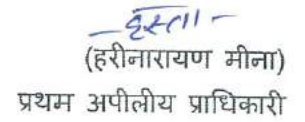 हस्ता
(हरीनारायण मीना)
प्रथम अपीलीय प्राधिकारी